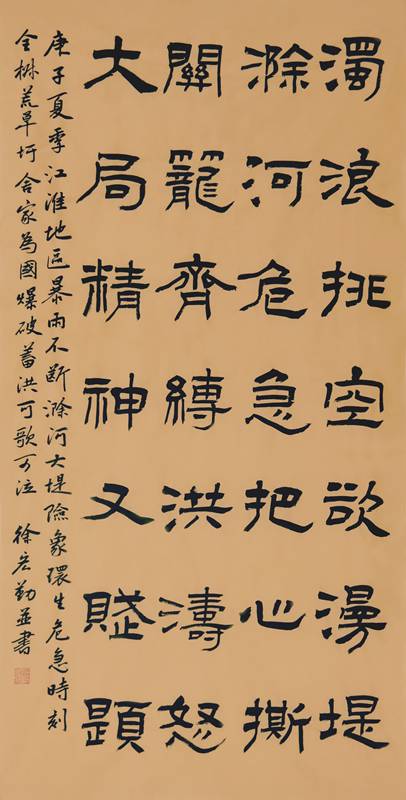 濁浪排空欲漫堤
滁河危急把心撕
關籠齊縛洪濤怒
大局精神又賦題
庚子夏季江淮地區暴雨不斷滁河大堤險象環生危急時刻
全椒荒草圩舍家為國爆破蓄洪可歌可泣 徐宏勤並書